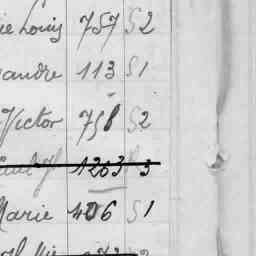 Louis 757 S2
andre 113 S1
Victor 758 S2
1203 3
Marie 406 S1